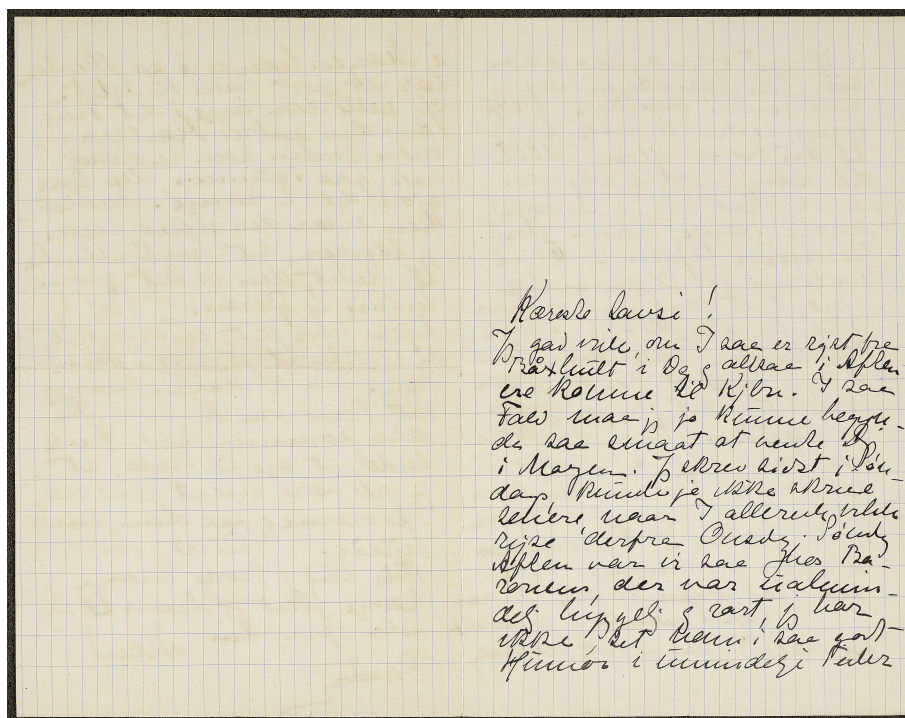 Kæreste Lavsi!
Jg gad vide, om I saa er rejst fra
Råxhult i Dag & altsaa i Aften
ere komne til Kjbn. I saa
Fald maa jg jo kunne begyn-
de saa smaat at vente Dg
i Morgen. Jg skrev sidst i Søn-
dags, kunde jo ikke skrive
senere naar I allerede vilde
rejse derfra Onsdg. Søndg
Aften var vi saa hos Ba-
ronens, der var ualmin-
delg hyggelg & rart, jg har
ikke set ham i saa godt
Humør i umindelige Tider